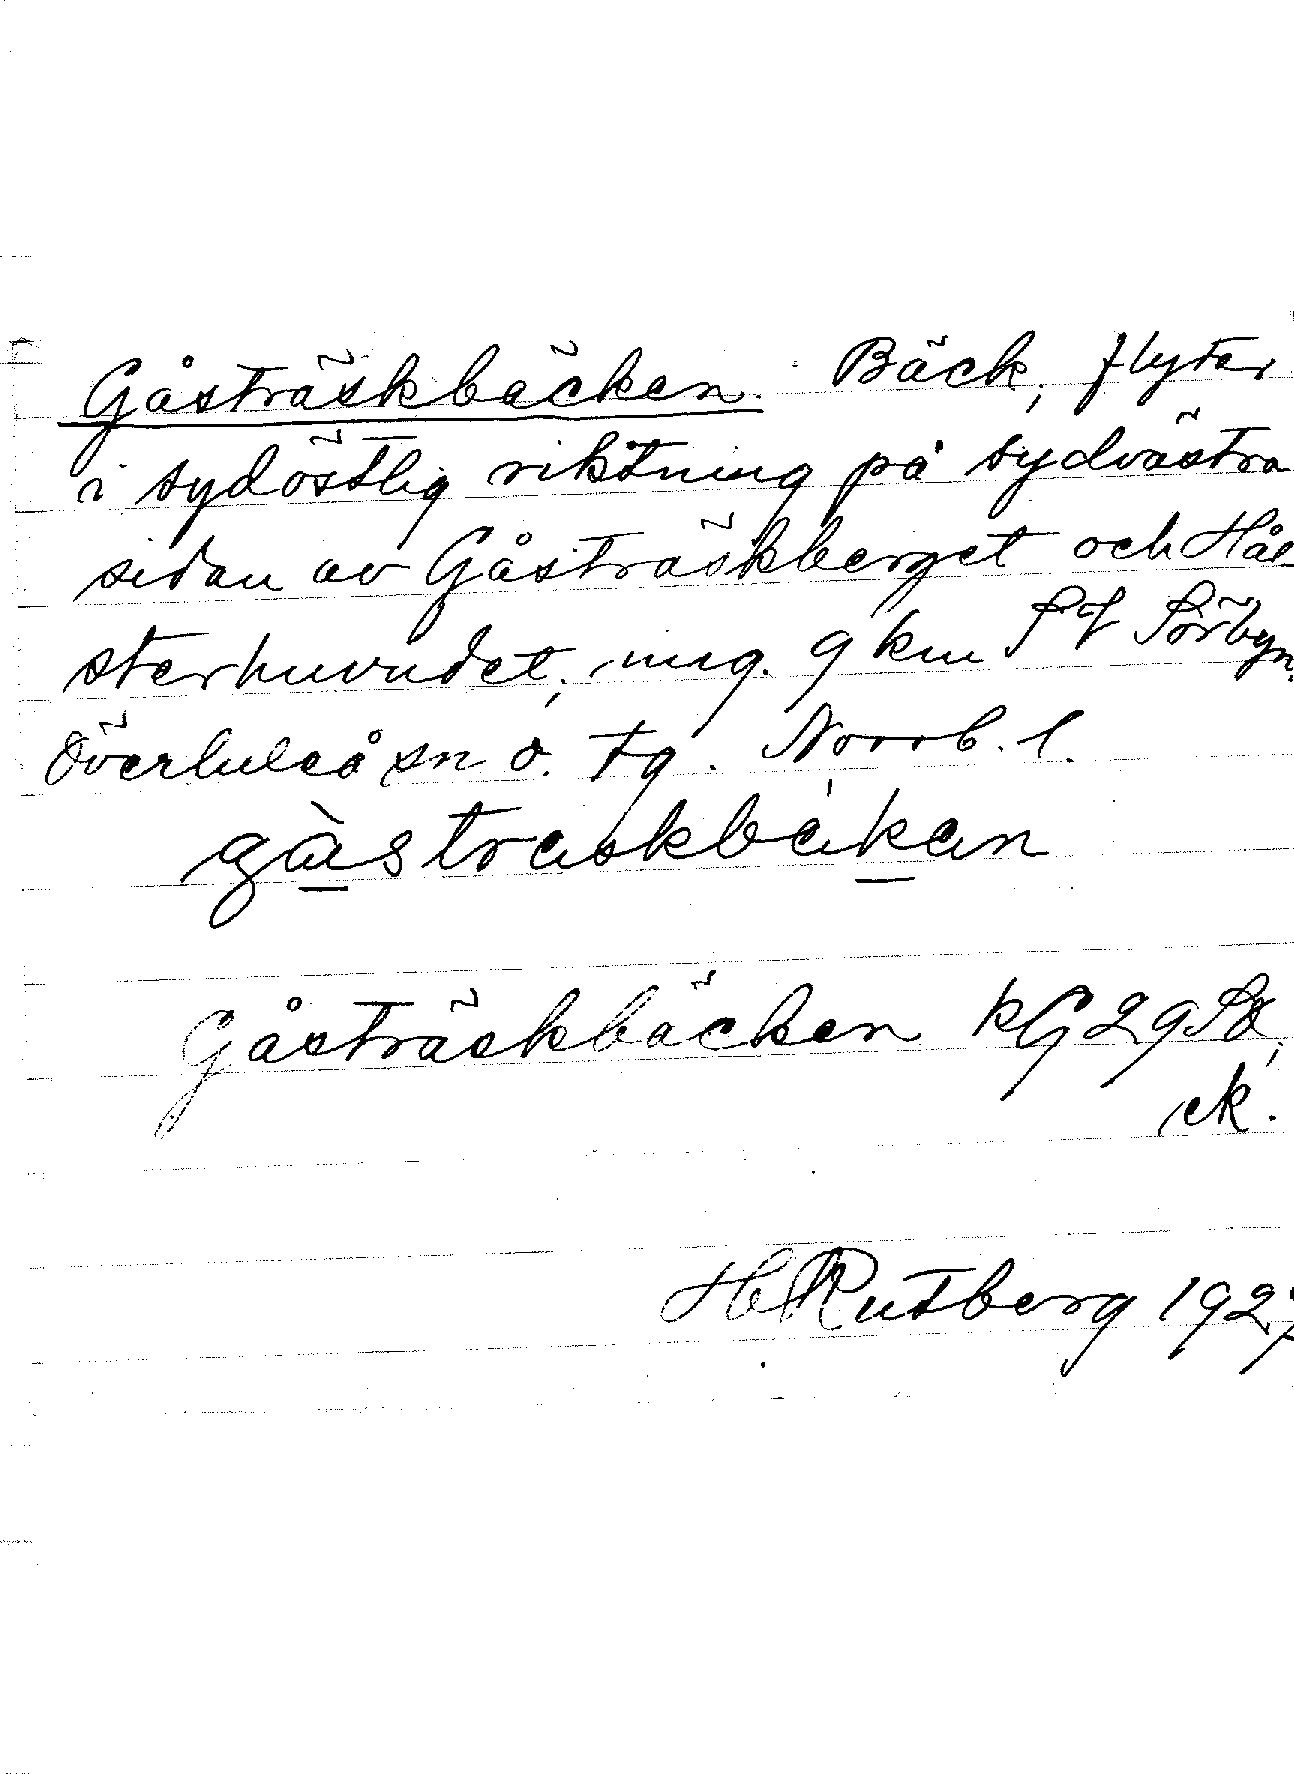 Gåsträskbäcken. Bäck, flyter
i sydöstlig riktning på sydvästra
sidan av Gåsträskberget och Hål-
sterhuvudet, ung. 9 km SV Sörbyn.
Överluleå sn o. tg. Norrb. l.
gåstraskbäkan
Gåsträskbäcken kG 29 SO,
ek.
H Rutberg 1927